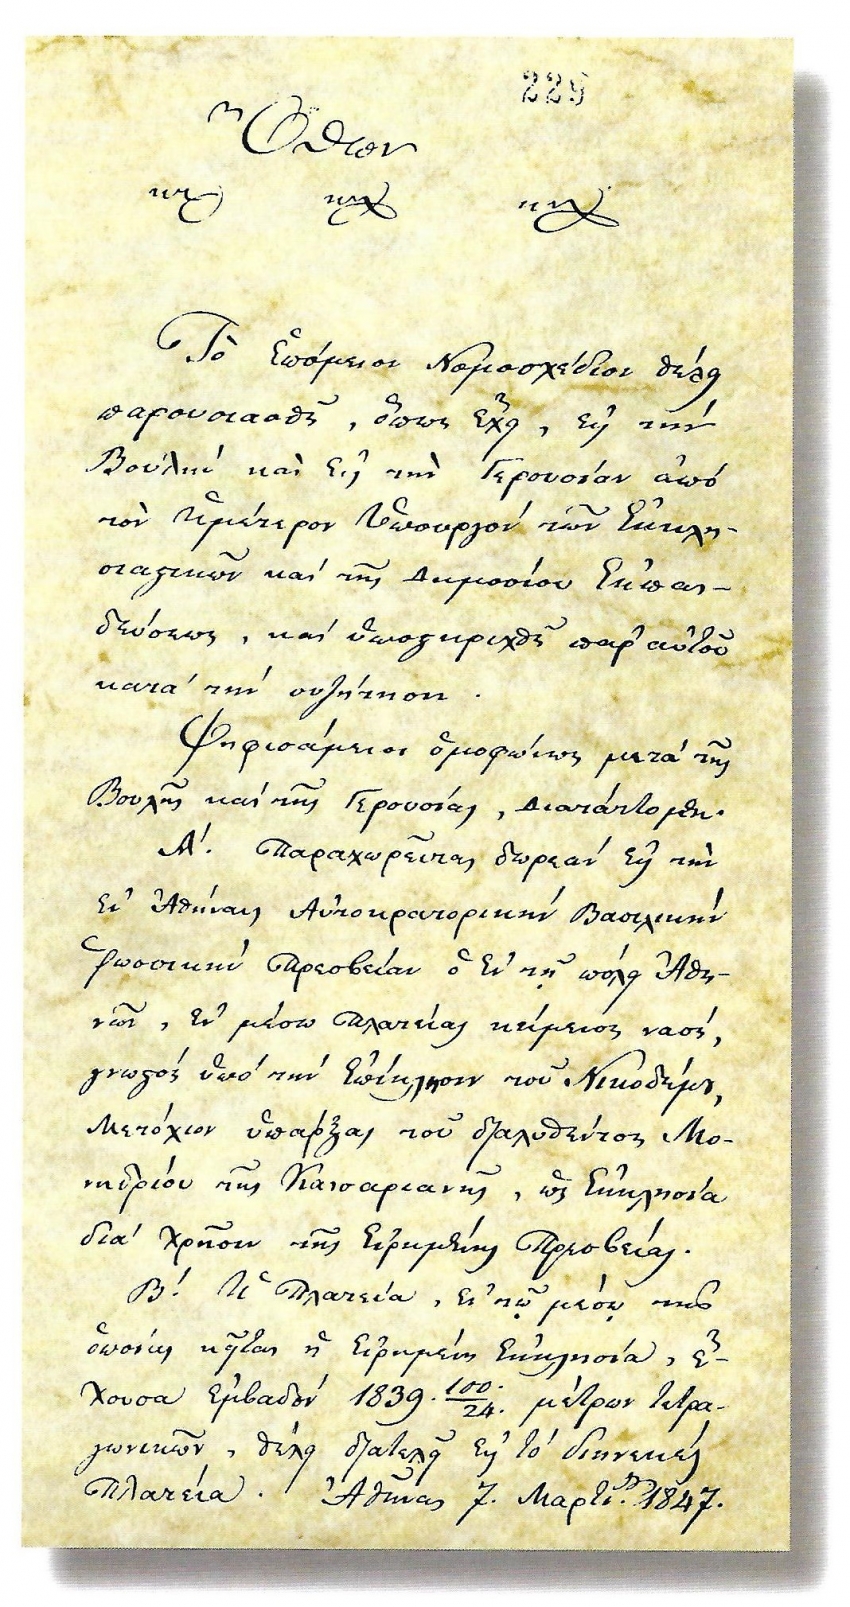 229
Ὄθων
κτλ κτλ κτλ
Τὸ ἑπόμενον Νομοσχέδιον θέλει
παρουσιασθῆ, ὅπως ἔχει, εἰς τὴν
Βουλὴν καὶ εἰς τὴν Γερουσίαν ἀπὸ
τὸν ἡμέτερον Ὑπουργὸν τῶν Ἐκκλη-
σιαστικῶν καὶ τῆς Δημοσίου Ἐκπαι-
δεύσεως, καὶ ὑποστηριχθῆ παρ' αὐτοῦ
κατὰ τὴν συζήτησιν.
Ψηφισάμενοι ὁμοφώνως μετὰ τῆς
Βουλῆς καὶ τῆς Γερουσίας, Διατάττομεν.
Α'. Παραχωρεῖται δωρεὰν εἰς τὴν
ἐν Ἀθήναις Αὐτοκρατορικὴν Βασιλικὴν
Ῥωσσικὴν Πρεσβείαν ὁ ἐν τῇ πόλει Ἀθη-
νῶν, ἐν μέσω Πλατείας κείμενος ναὸς,
γνωστὸς ὑπὸ τὴν ἐπίκλησιν τοῦ Νικοδήμου,
Μετόχιον ὑπάρξας τοῦ διαλυθέντος Μο-
νηδρίου τῆς Καισαριανῆς, ὡς Ἐκκλησία
διὰ χρῆσιν τῆς εἰρημένης Πρεσβείας.
Β'. Ἡ Πλατεία, ἐν τῷ μέσῳ τῆς
ὁποίας κεῖται ἡ εἰρημένη Ἐκκλησία, ἔ-
χουσα ἐμβαδὸν 1839. 100/24. μέτρων τετρα-
γωνικῶν, θέλει διατελεῖ εἰς τὸ διηνεκὲς
Πλατεία. Ἀθῆναι 7. Μαρτί. 1847.